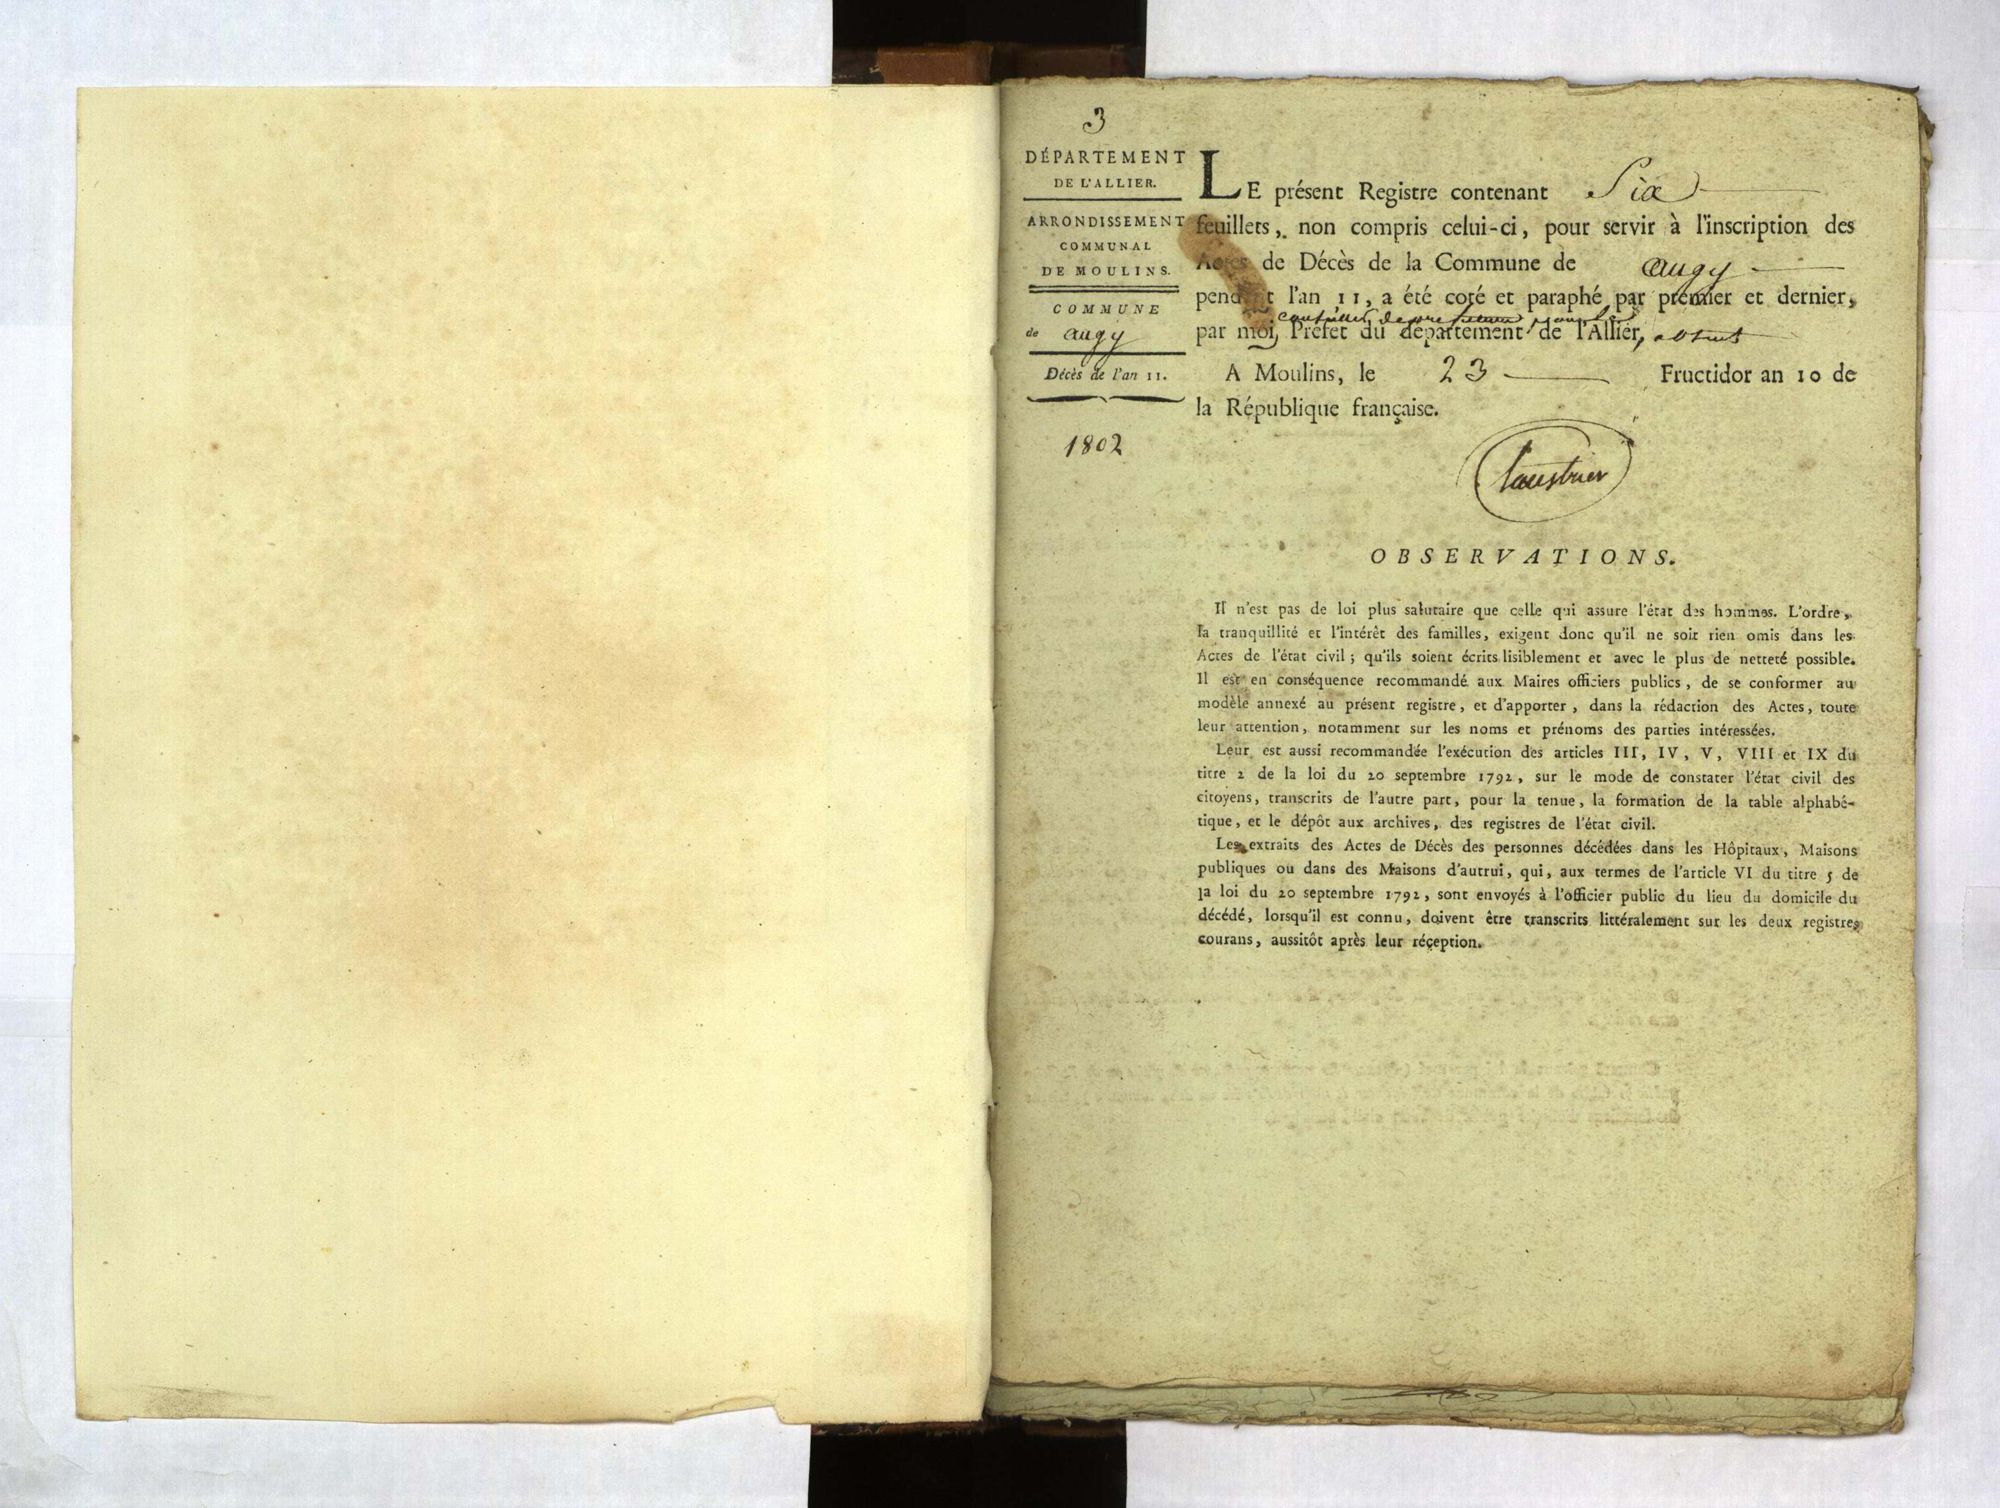 3
DÉPARTEMENT
DE L'ALLIER.
ARRONDISSEMENT
COMMUNAL
DE MOULINS.
COMMUNE
de augy
Décès de l'an 11.
1802
LE présent Registre contenant Six
feuillets, non compris celui-ci, pour servir à l'inscription des
Actes de Décès de la Commune de augy
pendant l'an 11, a été coté et paraphé par premier et dernier,
conseiller de prefecture pour le
par moi, Préfet du département de l'Allier, absent
A Moulins, le 23 Fructidor an 10 de
la République française.
OBSERVATIONS.
Il n'est pas de loi plus salutaire que celle qui assure l'état des hommes. L'ordre,
la tranquillité et l'intérêt des familles, exigent donc qu'il ne soit rien omis dans les
Actes de l'état civil ; qu'ils soient écrits lisiblement et avec le plus de netteté possible.
Il est en conséquence recommandé aux Maires officiers publics, de se conformer au
modèle annexé au présent registre, et d'apporter, dans la rédaction des Actes, toute
leur attention, notamment sur les noms et prénoms des parties intéressées.
Leur est aussi recommandée l'exécution des articles III, IV, V, VIII et IX du
titre 2 de la loi du 20 septembre 1792, sur le mode de constater l'état civil des
citoyens, transcrits de l'autre part, pour la tenue, la formation de la table alphabé-
tique, et le dépôt aux archives, des registres de l'état civil.
Les extraits des Actes de Décès des personnes décédées dans les Hôpitaux, Maisons
publiques ou dans des Maisons d'autrui, qui, aux termes de l'article VI du titre 5 de
la loi du 20 septembre 1792, sont envoyés à l'officier public du lieu du domicile du
décédé, lorsqu'il est connu, doivent être transcrits littéralement sur les deux registres
courans, aussitôt après leur réception.